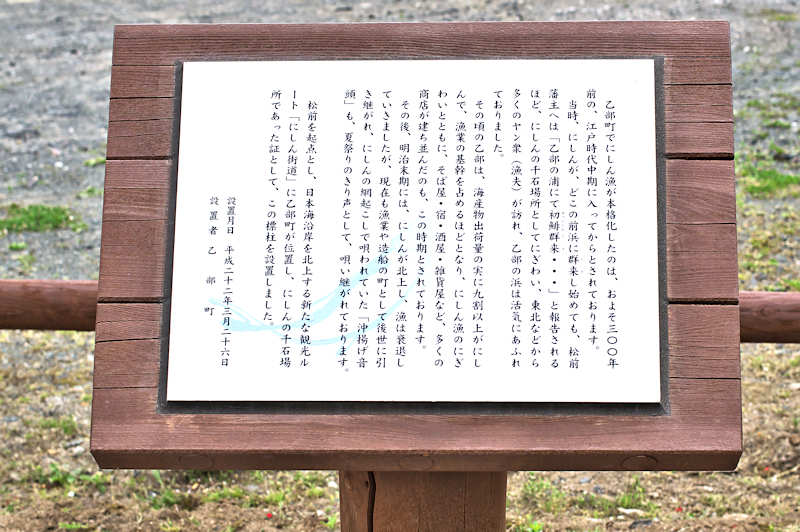 乙部町でにしん漁が本格化したのは、およそ三〇〇年
前の、江戸時代中期に入ってからとされております。
当時、にしんが、どこの前浜に群来し始めても、松前
藩主へは「乙部の浦にて初鯡群来・・・」と報告される
ほど、にしんの千石場所としてにぎわい、東北などから
多くのヤン衆（漁夫）が訪れ、乙部の浜は活気にあふれ
ておりました。
その頃の乙部は、海産物出荷量の実に九割以上がにし
んで、漁業の基幹を占めるほどとなり、にしん漁のにぎ
わいとともに、そば屋・宿・酒屋・雑貨屋など、多くの
商店が建ち並んだのも、この時期とされております。
その後、明治末期には、にしんが北上し、漁は衰退し
ていきましたが、現在も漁業や造船の町として後世に引
き継がれ、にしんの網起こしで唄われていた「沖揚げ音
頭」も、夏祭りのきり声として、唄い継がれております。
松前を起点とし、日本海沿岸を北上する新たな観光ル
ート「にしん街道」に乙部町が位置し、にしんの千石場
所であった証として、この標柱を設置しました。
設置月日 平成二十二年三月二十六日
設置者 乙部町